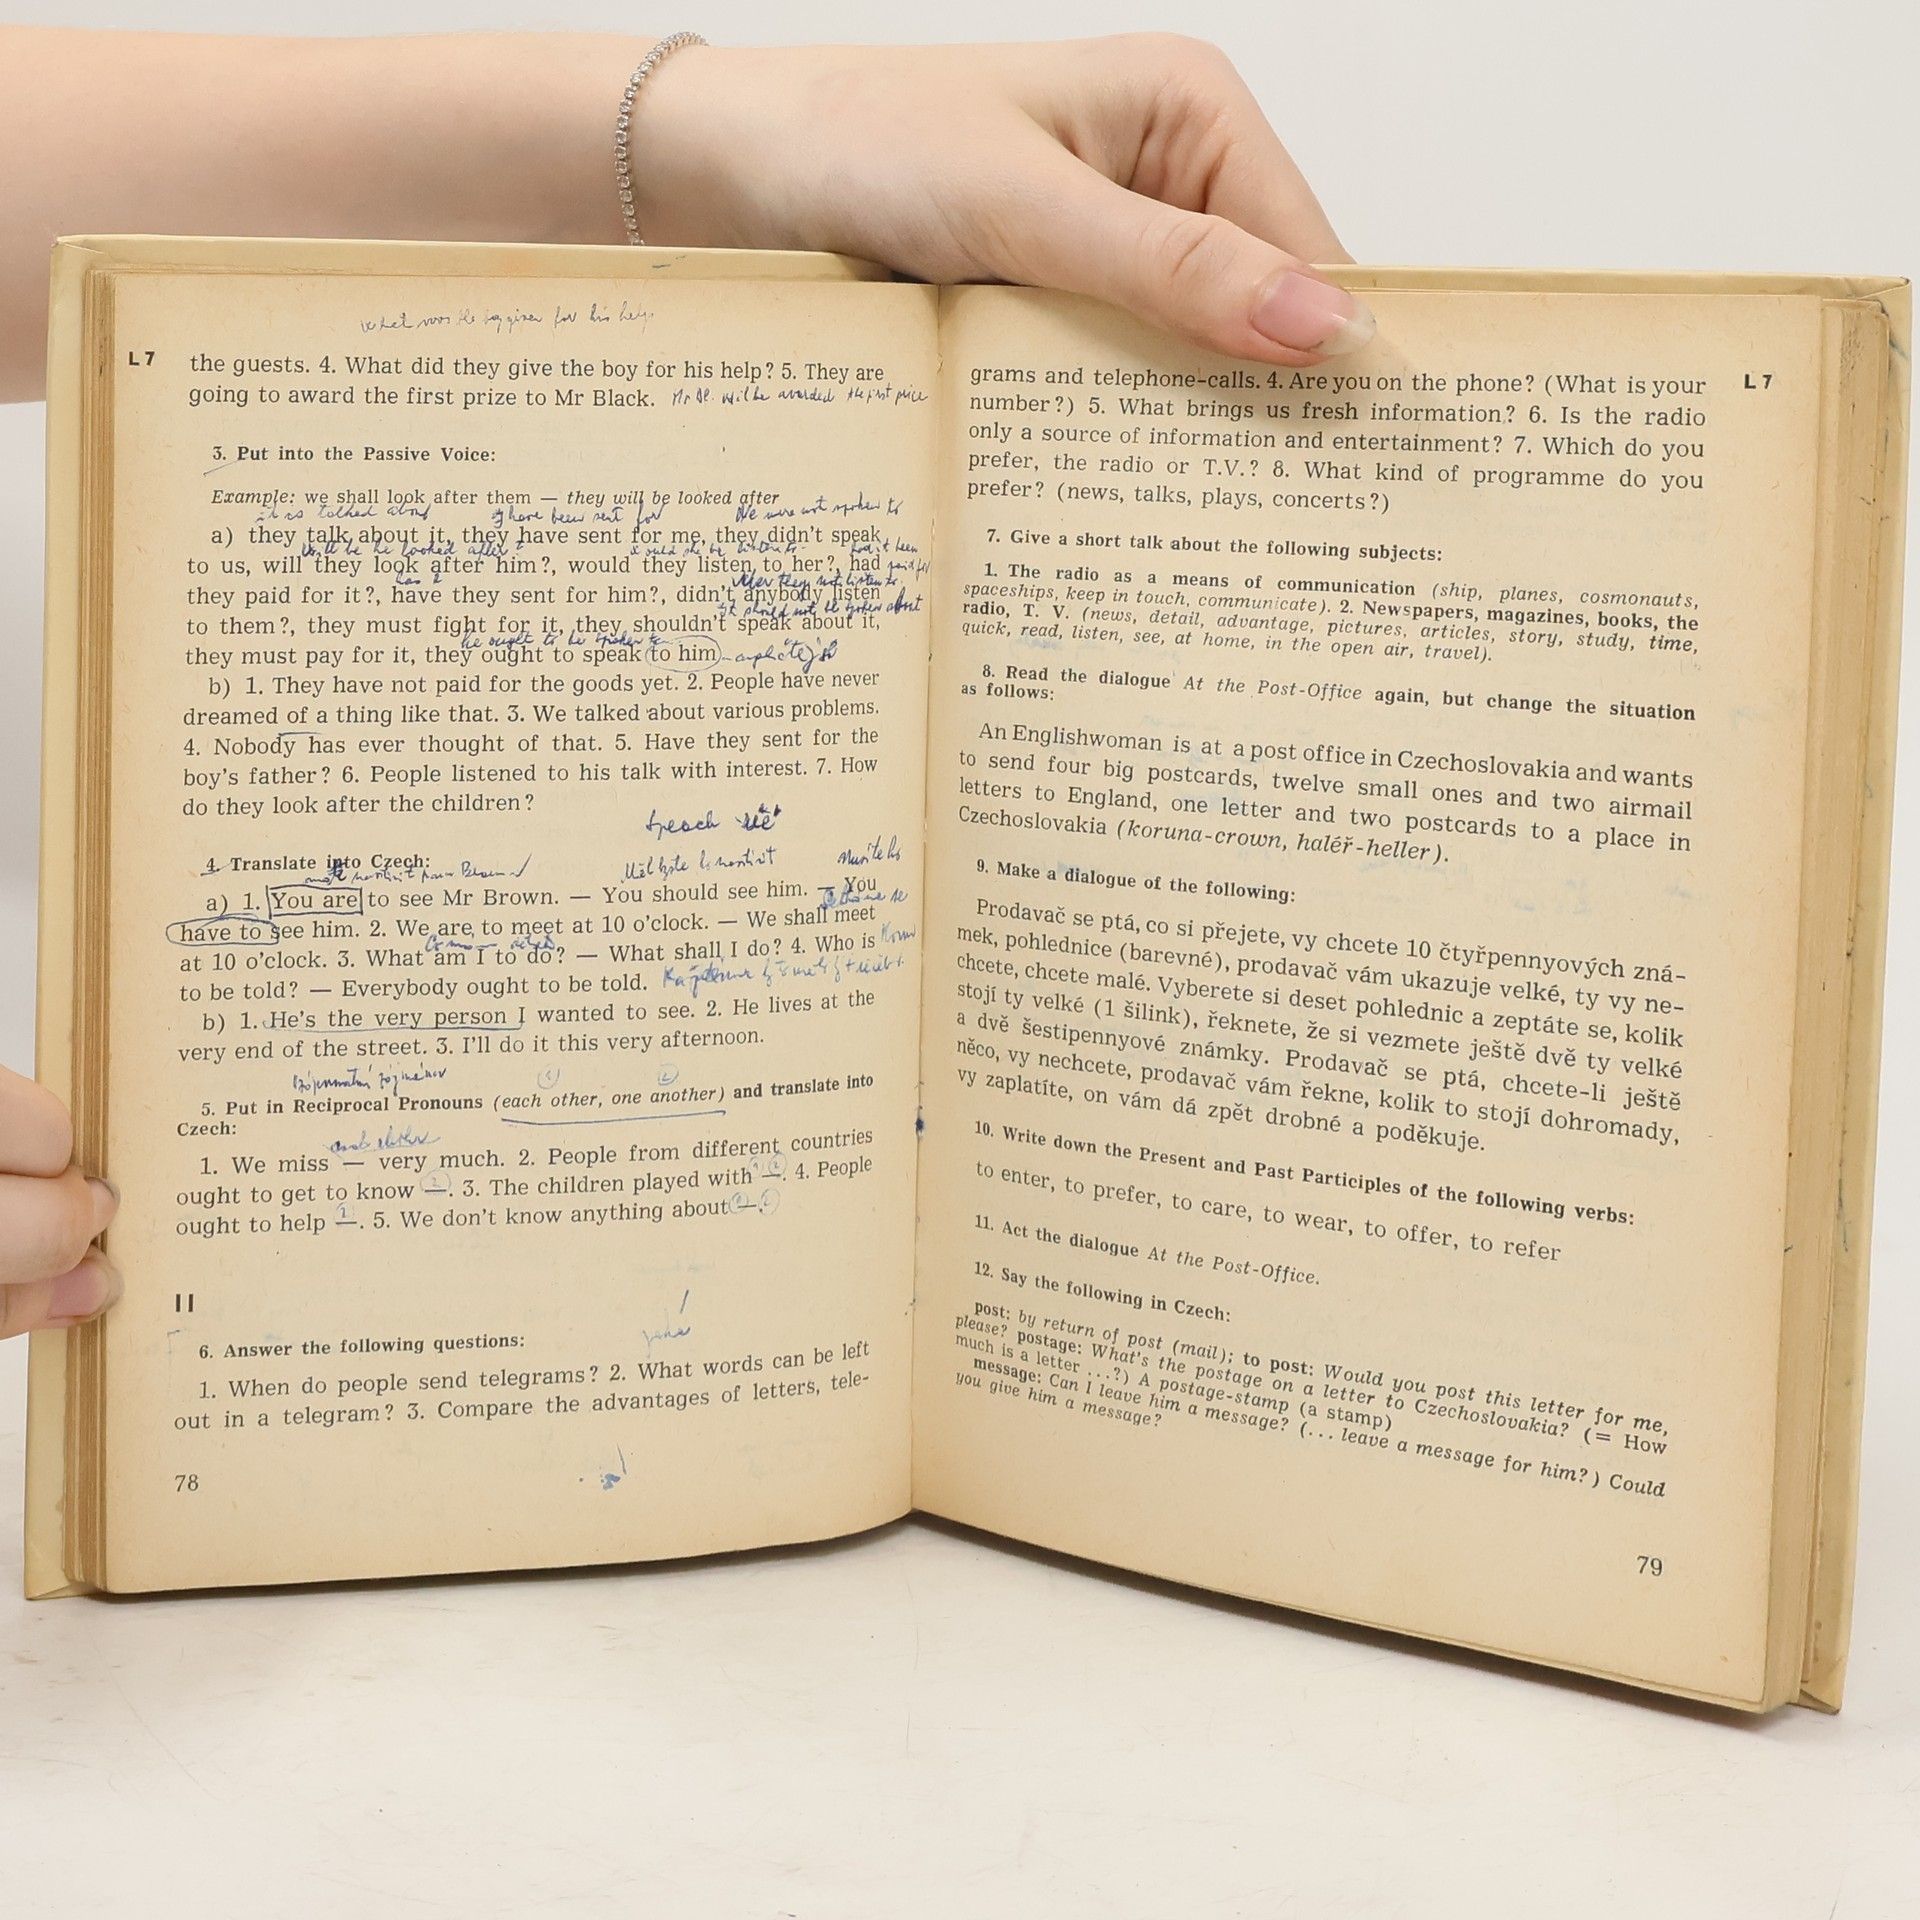 What was the boy given for his help
L 7
the guests. 4. What did they give the boy for his help? 5. They are
going to award the first prize to Mr Black. will be awarded the first price
3. Put into the Passive Voice:
Example: we shall look after them — they will be looked after
it is talked about have been sent for We were not spoken to
a) they talk about it, they have sent for me, they didn't speak
will be he looked after would she be listen to had it been
to us, will they look after him?, would they listen to her?, had paid for
they paid for it?, have they sent for him?, didn't anybody listen
it should not be spoken about
to them?, they must fight for it, they shouldn't speak about it,
he ought to be spoken to
they must pay for it, they ought to speak to him
b) 1. They have not paid for the goods yet. 2. People have never
dreamed of a thing like that. 3. We talked about various problems.
4. Nobody has ever thought of that. 5. Have they sent for the
boy's father? 6. People listened to his talk with interest. 7. How
do they look after the children?
speach
4. Translate into Czech:
a) 1. You are to see Mr Brown. — You should see him. — You
have to see him. 2. We are to meet at 10 o'clock. — We shall meet
at 10 o'clock. 3. What am I to do? — What shall I do? 4. Who is
to be told? — Everybody ought to be told.
b) 1. He's the very person I wanted to see. 2. He lives at the
very end of the street. 3. I'll do it this very afternoon.
1 2
5. Put in Reciprocal Pronouns (each other, one another) and translate into
Czech:
1. We miss — very much. 2. People from different countries
ought to get to know —. 3. The children played with —. 4. People
ought to help —. 5. We don't know anything about —.
II
6. Answer the following questions:
1. When do people send telegrams? 2. What words can be left
out in a telegram? 3. Compare the advantages of letters, tele-
78
L 7
grams and telephone-calls. 4. Are you on the phone? (What is your
number?) 5. What brings us fresh information? 6. Is the radio
only a source of information and entertainment? 7. Which do you
prefer, the radio or T.V.? 8. What kind of programme do you
prefer? (news, talks, plays, concerts?)
7. Give a short talk about the following subjects:
1. The radio as a means of communication (ship, planes, cosmonauts,
spaceships, keep in touch, communicate). 2. Newspapers, magazines, books, the
radio, T. V. (news, detail, advantage, pictures, articles, story, study, time,
quick, read, listen, see, at home, in the open air, travel).
8. Read the dialogue At the Post-Office again, but change the situation
as follows:
An Englishwoman is at a post office in Czechoslovakia and wants
to send four big postcards, twelve small ones and two airmail
letters to England, one letter and two postcards to a place in
Czechoslovakia (koruna-crown, haléř-heller).
9. Make a dialogue of the following:
Prodavač se ptá, co si přejete, vy chcete 10 čtyřpennyových zná-
mek, pohlednice (barevné), prodavač vám ukazuje velké, ty vy ne-
chcete, chcete malé. Vyberete si deset pohlednic a zeptáte se, kolik
stojí ty velké (1 šilink), řeknete, že si vezmete ještě dvě ty velké
a dvě šestipennyové známky. Prodavač se ptá, chcete-li ještě
něco, vy nechcete, prodavač vám řekne, kolik to stojí dohromady,
vy zaplatíte, on vám dá zpět drobné a poděkuje.
10. Write down the Present and Past Participles of the following verbs:
to enter, to prefer, to care, to wear, to offer, to refer
11. Act the dialogue At the Post-Office.
12. Say the following in Czech:
post: by return of post (mail); to post: Would you post this letter for me,
please? postage: What's the postage on a letter to Czechoslovakia? (= How
much is a letter ...?) A postage-stamp (a stamp)
message: Can I leave him a message? (... leave a message for him?) Could
you give him a message?
79